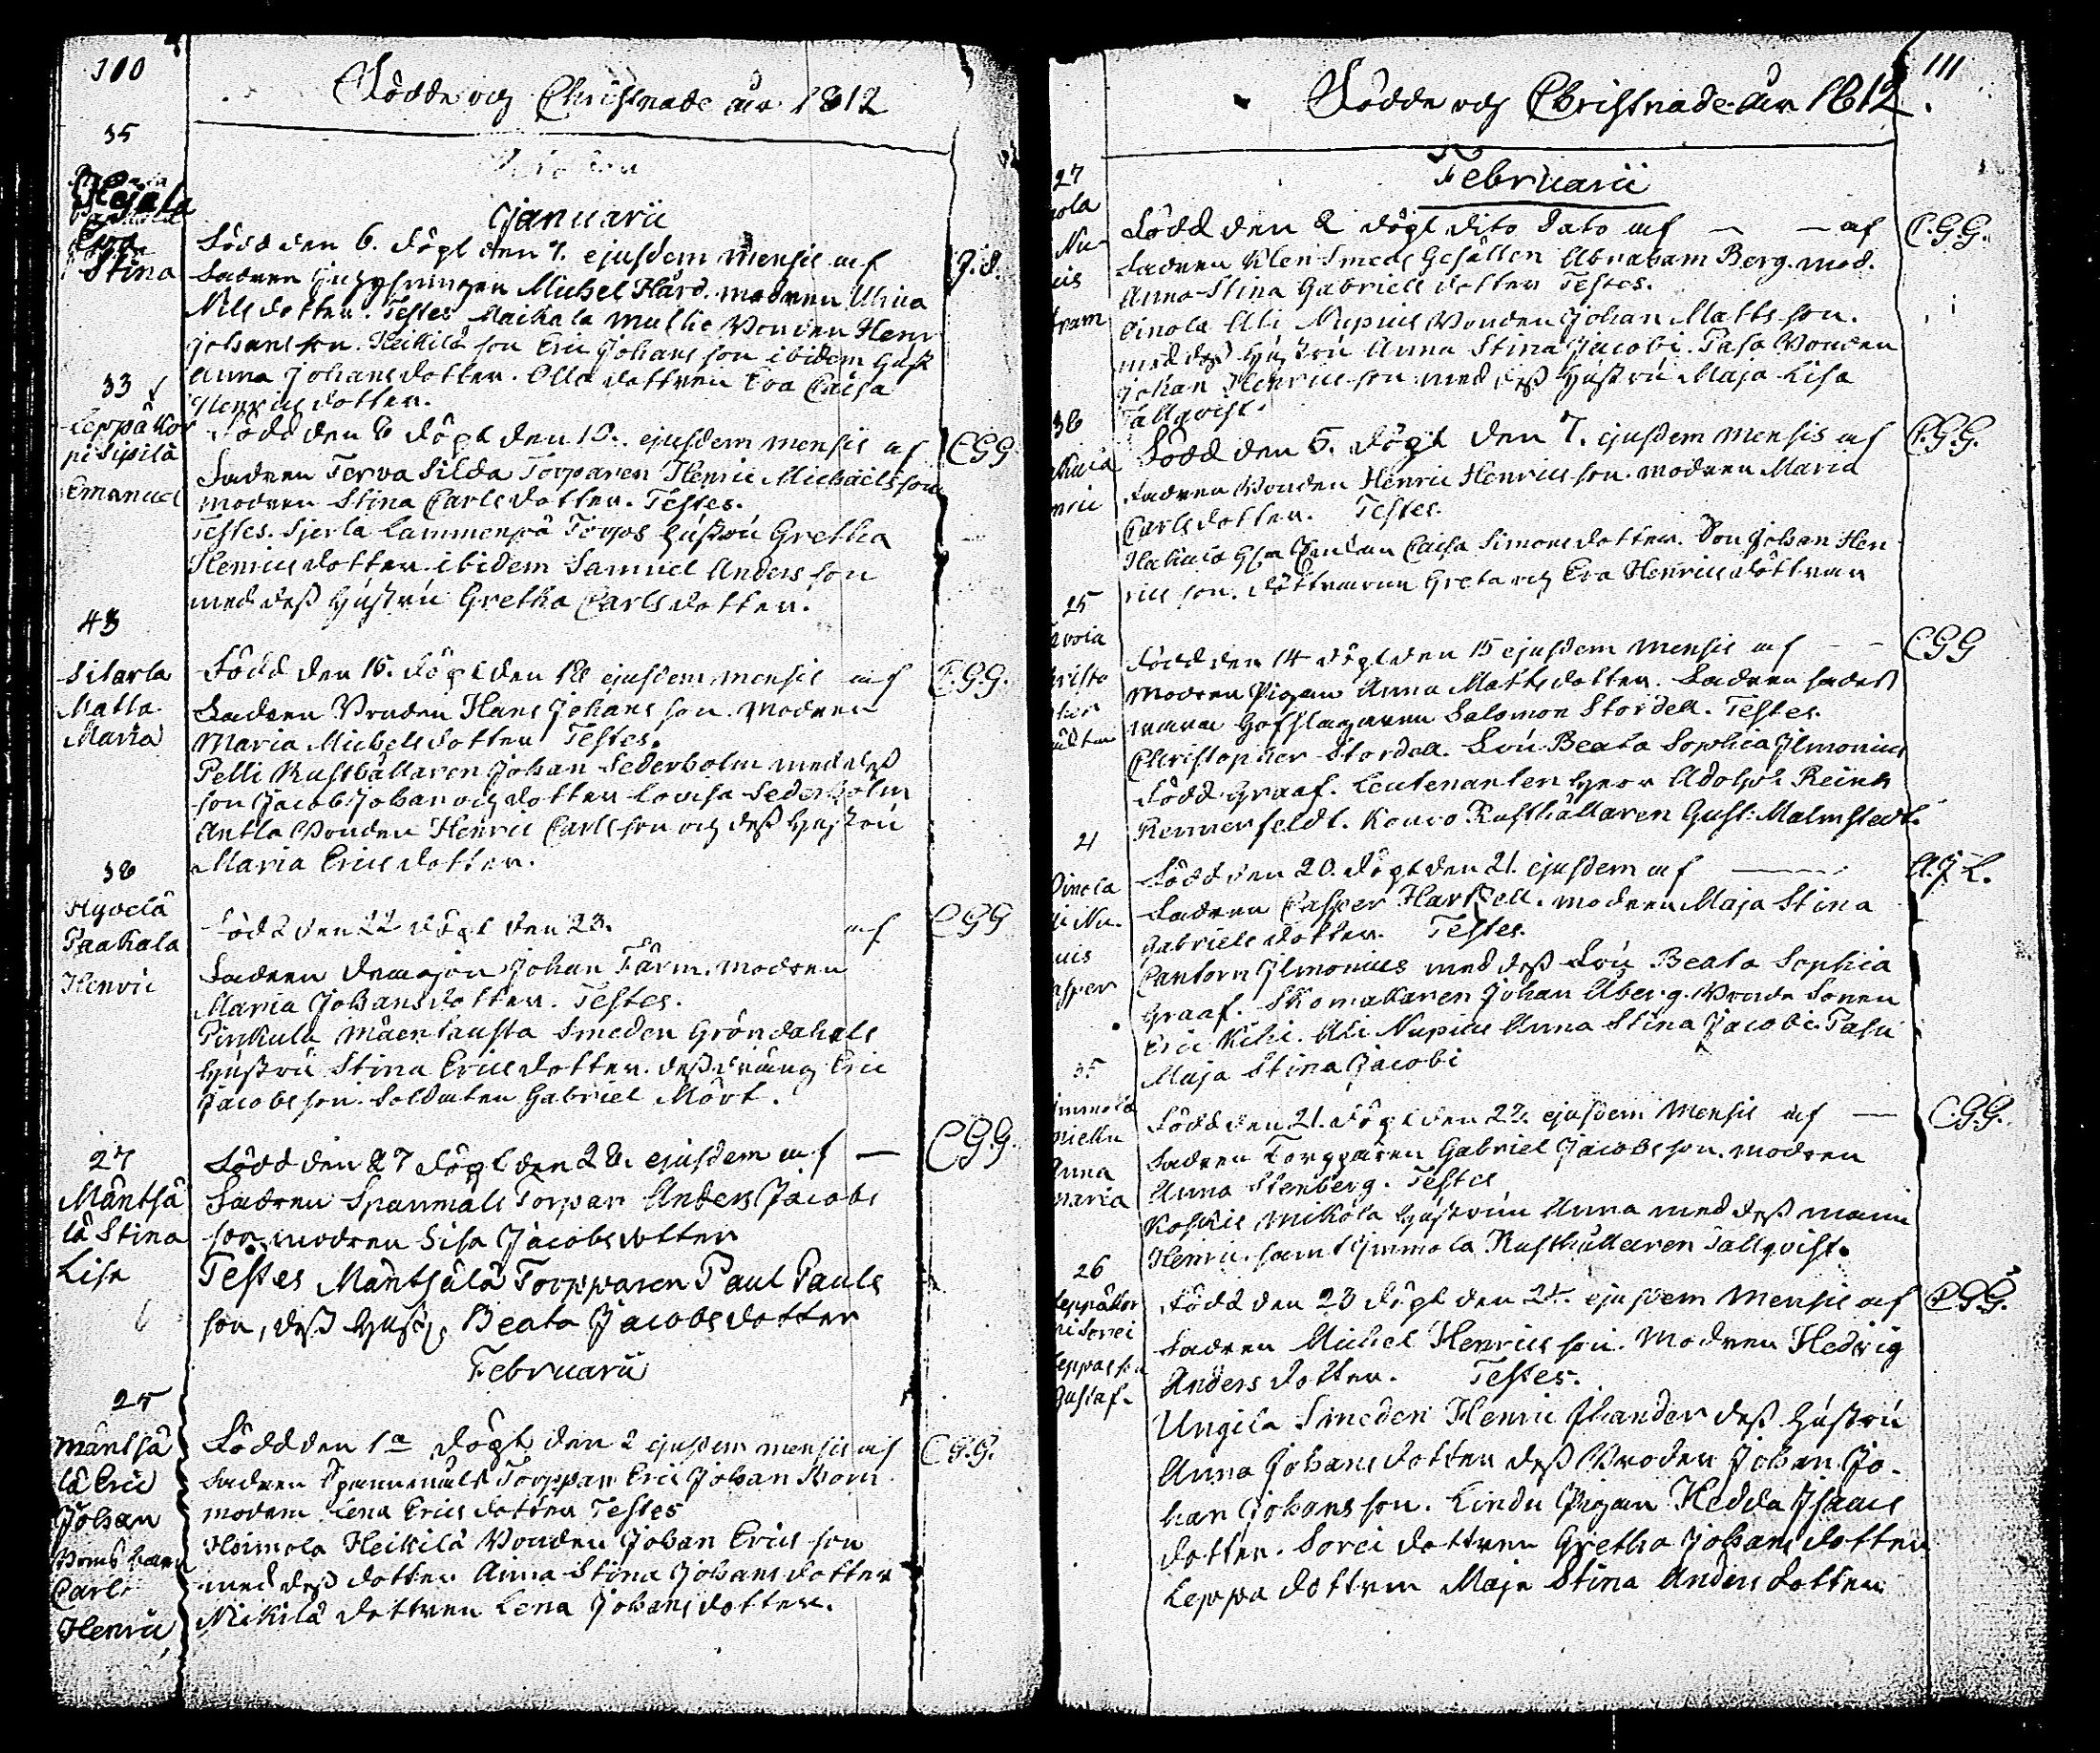 100
Födde och Christnade år 1812
35
Stina
Januarii
Född den 6. döpt den 7. ejusdem mensis af
J. S.
Fadren Inhysningen Michel Hård. modren Ulrica
Nilsdotter. Testes Maikala Mullie Bonden Henr
Johansson. Heikilä son Eric Johansson ibidem Hust
Anna Johansdotter. Olla dottren Eva Caisa
Henricsdotter.
33
Leppäkos
pi Sipilä
Emanuel
Född den 6 döpt den 10. ejusdem mensis af
CGG
Fadren Terva Silda Torparen Henric Michaelsson
modren Stina Carlsdotter. Testes.
Testes. Sjerla Lammenpä Torpps hustru Gretha
Henricsdotter ibidem Samuel Andersson
med dess hustru Gretha Carlsdotter.
43
Silarla
Matla
Maria
Född den 16. döpt den 18 ejusdem mensis af
C.G.G.
Fadren Bonden Hans Johansson. Modren
Maria Michelsdotter Testes.
Pelli Rusthållaren Johan Sederholm med dess
son Jacob Johan och dotter Lovisa Sederholm
Antla Bonden Henric Carlsson och dess Hustru
Maria Ericsdotter.
38
Hyvelä
Paakala
Henric
Född den 22 döpt den 23. af
CGG
Fadren Johan Färm. modren
Maria Johansdotter. Testes.
Pinkula Måentausta Smeden Gröndahls
Hustru Stina Ericsdotter. dess dräng Eric
Jacobsson. Soldaten Gabriel Mört.
27
Mäntsä
lä Stina
Lisa
Född den 27 döpt den 28. ejusdem af —
CGG.
Fadren Spanmåls Torpar Anders Jacobs
son modren Lisa Jacobsdotter
Testes Mäntsälä Torpparen Paul Pauls
son, dess Hust. Beata Jacobsdotter
Februarii
25
Mäntsä
lä Eric
Johan
Carl
Henric
Född den 1a döpt den 2 ejusdem mensis af
CG.G.
Fadren Spannmåls Torppar Eric Johan
modern Lena Ericsdotter Testes
Heimola Heikilä Bonden Johan Ericsson
med dess dotter Anna Stina Johansdotter
Nikilä dottren Lena Johansdotter.
111
Födde och Christnade år 1812.
Februarii
27
ola
Nu-
ius
fram
Född den 2 döpt dito dato af — — af
C.GG.
Fadren Klen Smeds Gesällen Abraham Berg. mod.
Anna Stina Gabrielsdotter Testes.
Oinola Ali Nupius Bonden Johan Mattsson.
med dess Hustru Anna Stina Jacobi. Pasa Bonden
Johan Henricsson med dess Hustru Maja Lisa
Tallqvist.
36
nric
Född den 5. döpt den 7. ejusdem mensis af
C.GG.
Fadren Bonden Henric Henricsson. modren Maria
Carlsdotter. Testes.
Hakula Caisa Simonsdotter. Son Johan Hen
ricsson. döttrarna Greta och Eva Henricsdöttrar
25
risto
Född den 14 döpt den 15 ejusdem mensis af — —
CGG
modren Pigan Anna Mattsdotter. Fadren
Hofslagaren Salomon Stordell. Testes.
Christopher Stordell. Fru Beata Sophia Ilmonius
född Graaf. Leutenanten Herr Adolph Reinh
Rennerfeldt. Kouvo Rusthållaren Gust: Malmstedt.
21
Oinola
li Nu.
uis
asper
Född den 20. döpt den 21. ejusdem af —
A.J L.
Fadren Casper Hartzell. modren Maja Stina
Gabrielsdotter. Testes.
Cantorn Ilmonius med dess Fru Beata Sophia
Graaf. Skomakaren Johan Åberg. Bonde Sonen
Eric Kihi. Ali Nupius Anna Stina Jacobi. Pasu
Maja Stina Jacobi
35
immola
Anna
maria
Född den 21. döpt den 22. ejusdem Mensis af —
C.GG.
Fadren Torpparen Gabriel Jacobsson. modren
Anna Stenberg. Testes
Koskis Mikola Hustrun Anna med dess mann
Henric. samt Immola Rusthållaren Tallqvist.
26
Leppäkos
pi Sorri
Gustaf.
Född den 23 döpt den 24. ejusdem Mensis af
CGG.
Fadren Michel Henricsson. Modren Hedvig
Andersdotter. Testes.
Ungila Smeden Henric Ilander dess hustru
Anna Johansdotter dess Broder Johan Jo-
han Johansson. Lindu Pigan Hedda Isaacs
dotter. Sorri dottren Gretha Johansdotter
Leppa dottren Maja Stina Andersdotter